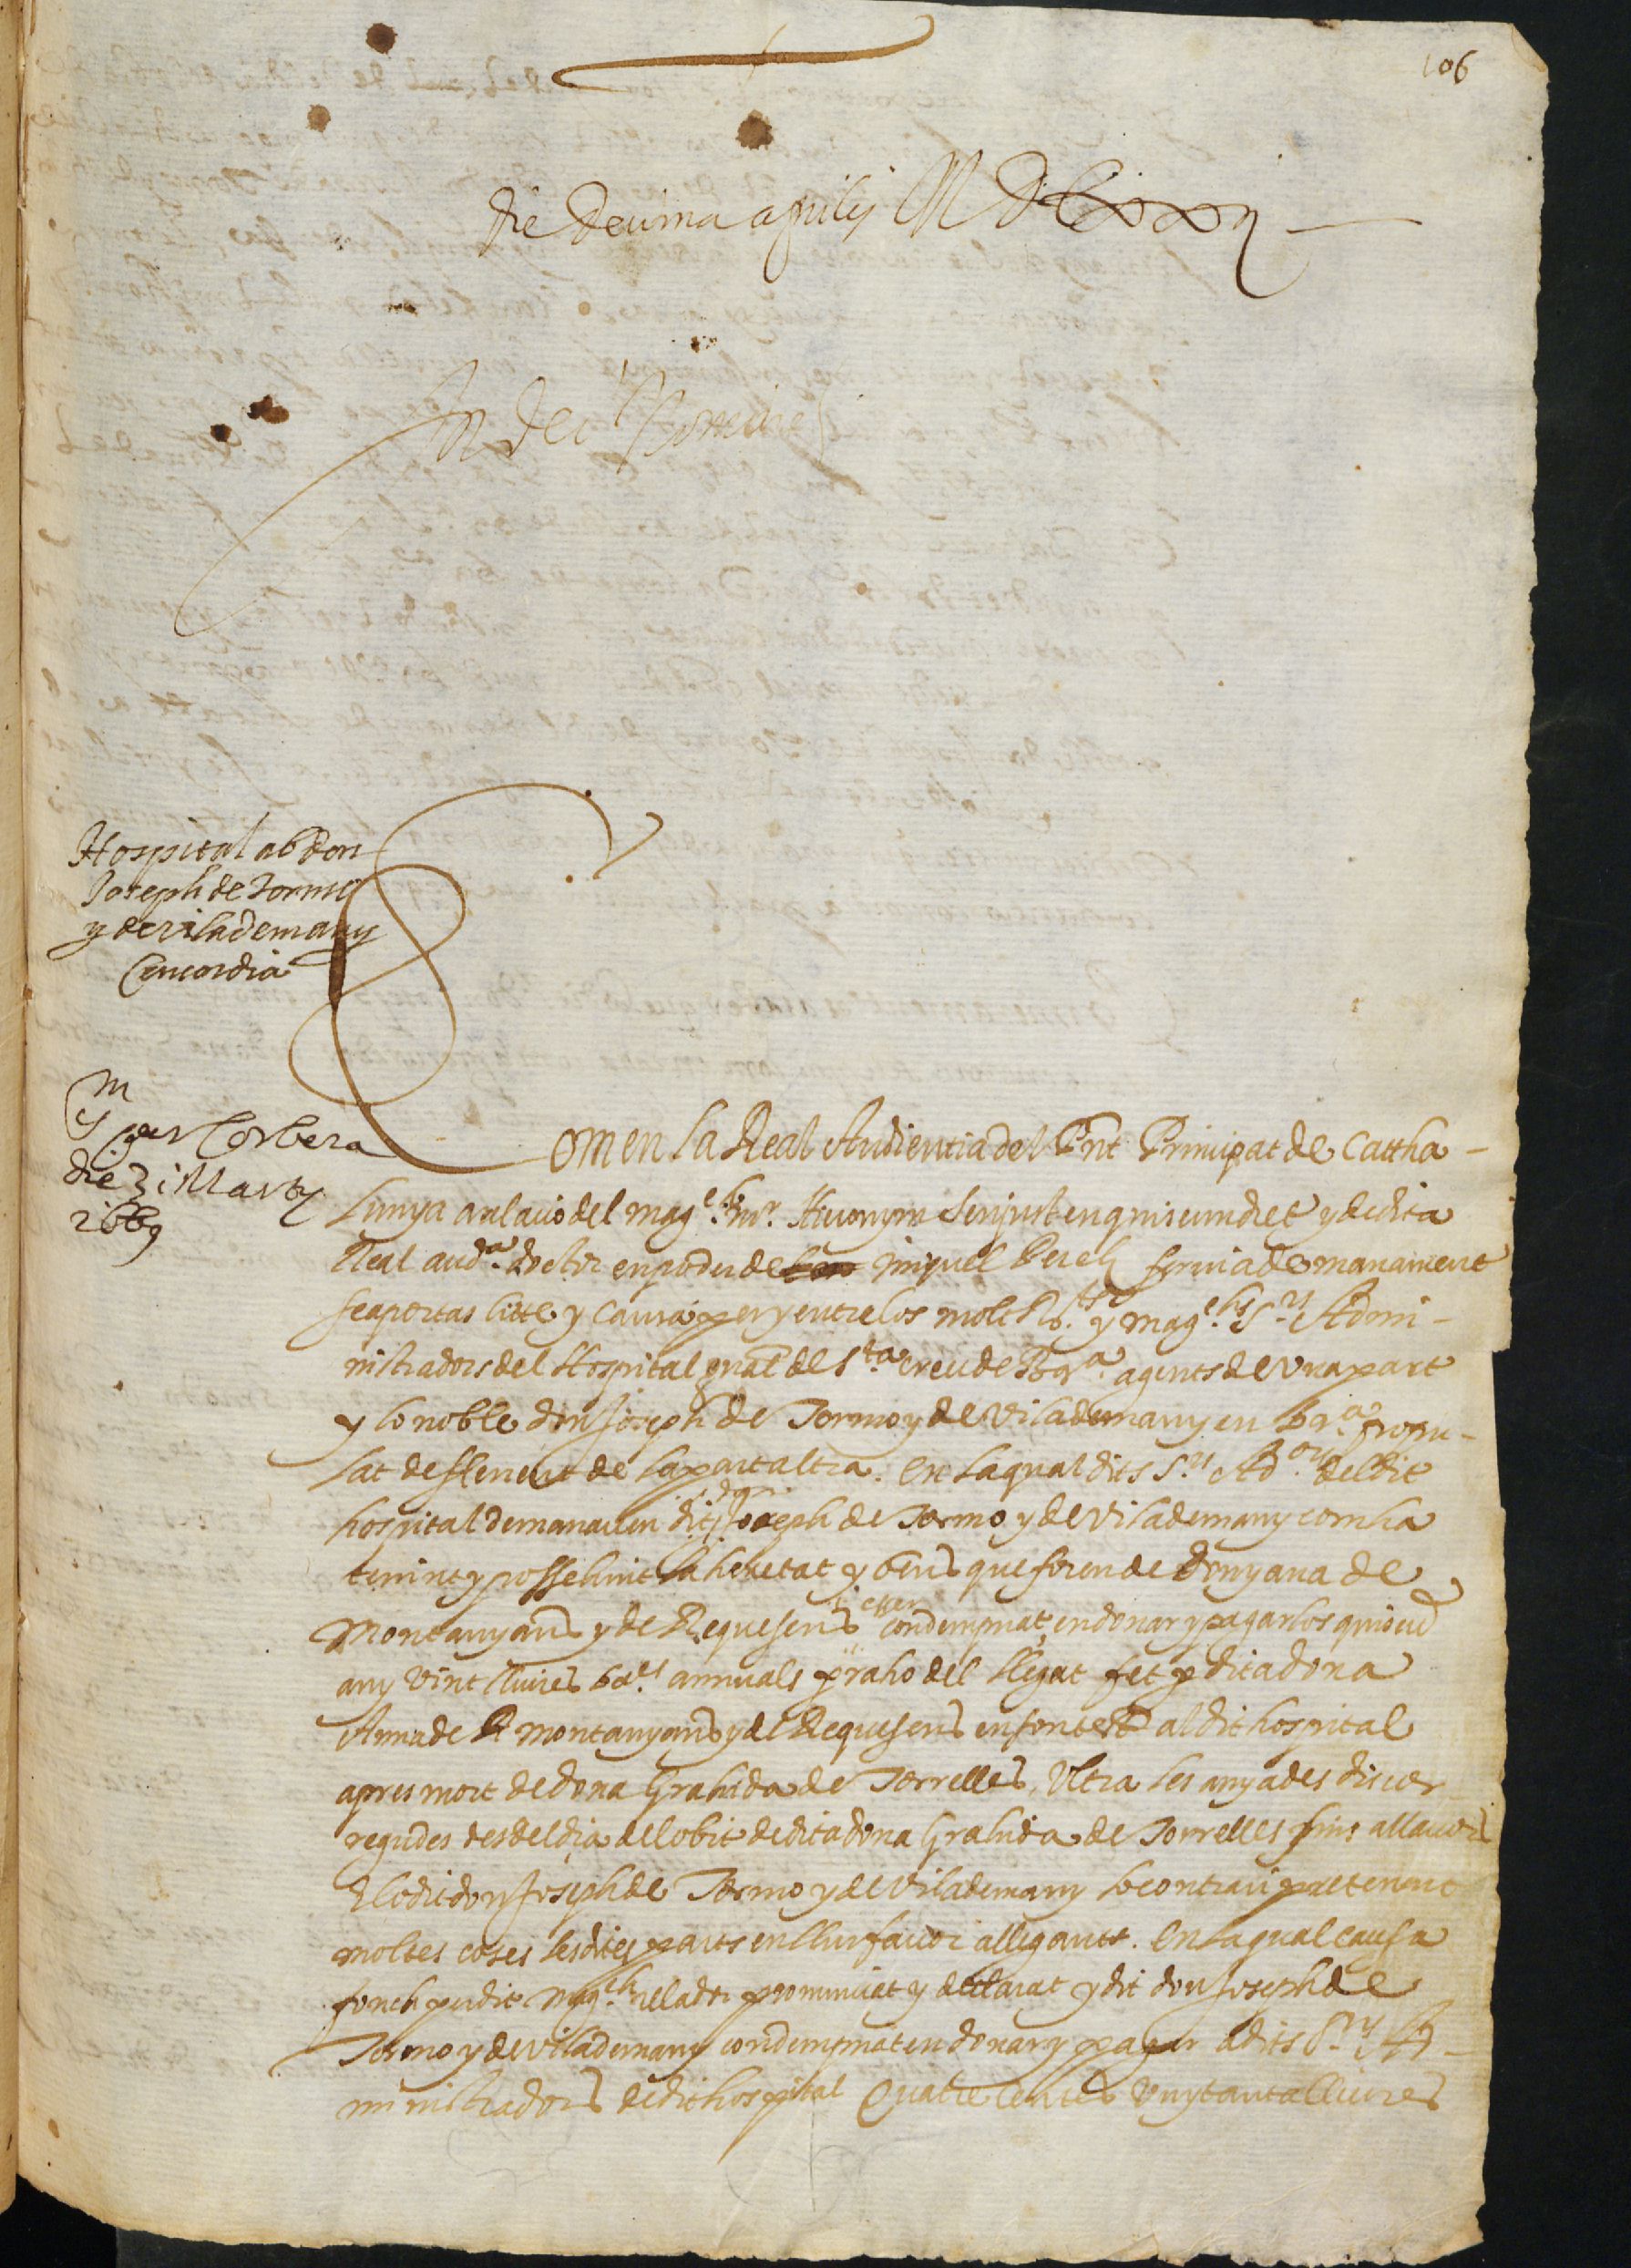 106
Die Decima aprilis M D
In Dei Nomine
Hospital ab Don
Joseph de Tormo
y de vilademany
Concordia
Corbera
die 3i Marty
1669
Com en la Real Audientia del pnt Principat de Cattha-
lunya a relacio del mag.ch mr. Hieronym Senjust enquiscun dret y de dita
Real aud.a doctor en poder de Miquel Perell scriva de manament
se aportas litte y causa per y entre los molt Rts. y mag.chs S.rs Admi-
nistradors del Hospital gnal de S.ta creu de Bar.a agents de una part
y lo noble don Joseph de Tormo y de Vilademany en Bar.a popu-
lat deffenent de la part altra. En la qual dits S.rs Ad.ors del dit
hospital demanaven dit don Joseph de Tormo y de Vilademany com ha
tenint y possehint la heretat y bens que foren de dony ana de
Montanyans y de Requesens esser condempnat en donar y pagarlos quiscun
any vint lliures bar.s annuals p raho del llegat fet p dita dona
Anna de Montanyans y de Requesens en son test al dit hospital
apres mort de dona Grahida de Torrelles, Ultra les anyades discor-
regudes des del dia del obit de dita dona Grahida de Torrelles fins allavors
E lo dit don Joseph de Tormo y de Vilademany lo contrari pretenent
moltes coses les dites parts en llur favor allegants. En la qual causa
fonch per dit mag.ch relador pronunciat y declarat y dit don Joseph de
Tormo y de Vilademany condempnat en donar y pagar a dits S.rs Ad-
ministradors de dit hospital Quatre centes vuytanta lliures